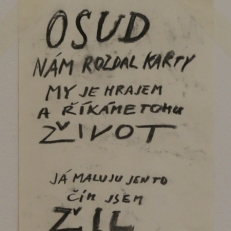 OSUD
NÁM ROZDAL KARTY
MY JE HRAJEM
A ŘÍKÁME TOMU
ŽIVOT
JÁ MALUJU JEN TO
ČÍM JSEM
ŽIL